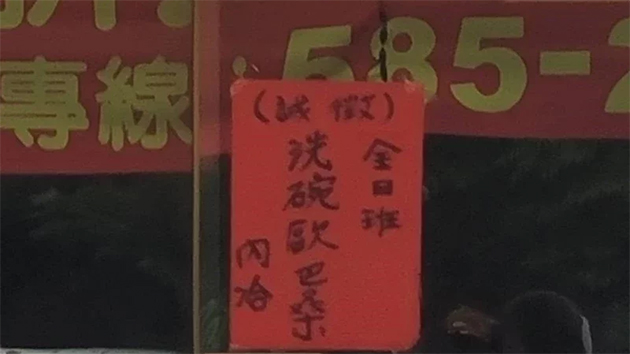 專線：585-2
（誠徵）
全日班
洗碗歐巴桑
內洽